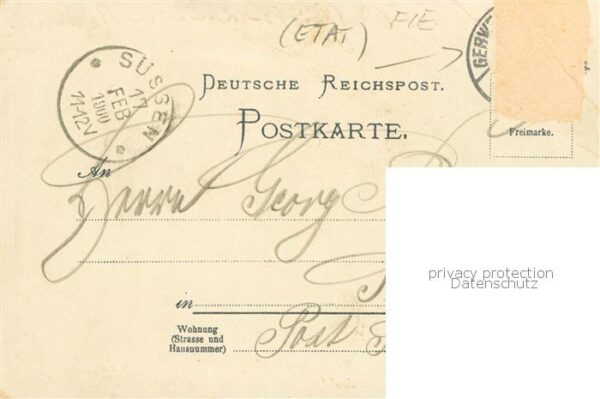 (ETAT)
FIE
GERW
SÜSSEN
17
FEB
1900
11-12V
DEUTSCHE REICHSPOST.
POSTKARTE.
Freimarke.
An
Herrn Georg
privacy protection
Datenschutz
in
Wohnung
(Strasse und
Hausnummer)
Post